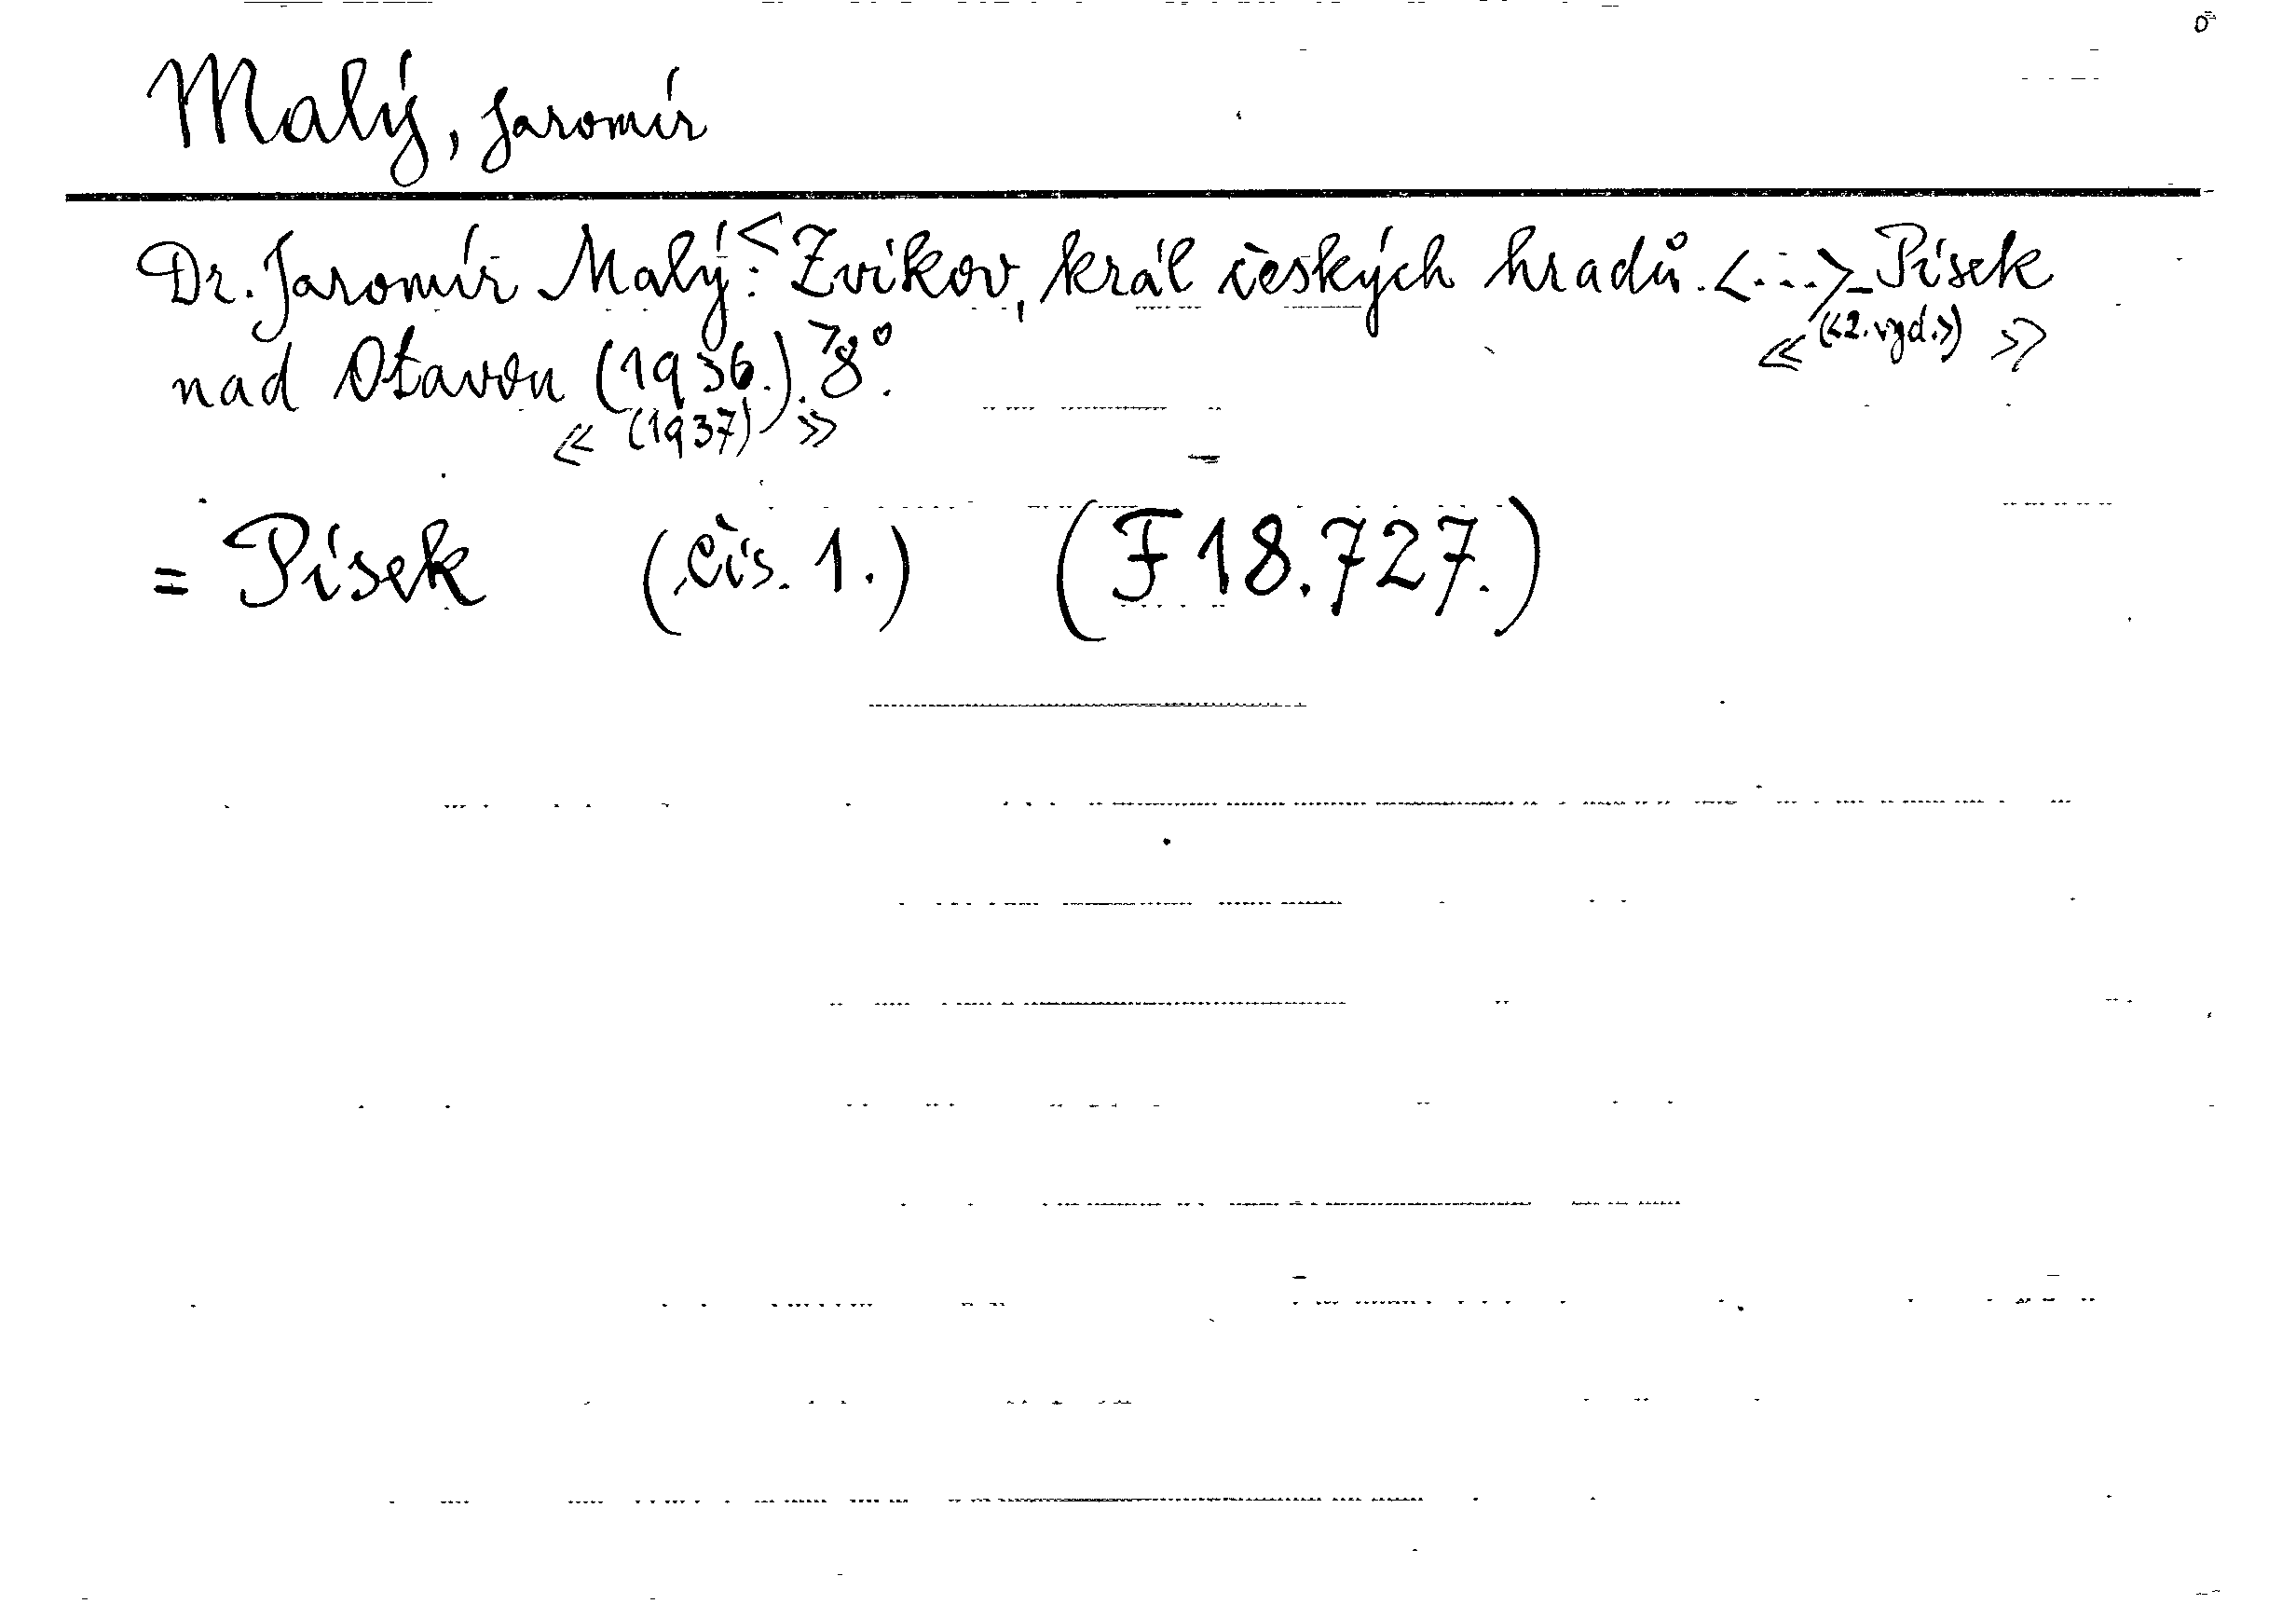 Malý, Jaromír
Dr. Jaromír Malý: < Zvíkov, král českých hradů. <...> - Písek
« (<2. vyd.>) »
nad Otavou (1936.). > 8°.
« (1937) »
= Písek (čís. 1.) (F 18.727.)